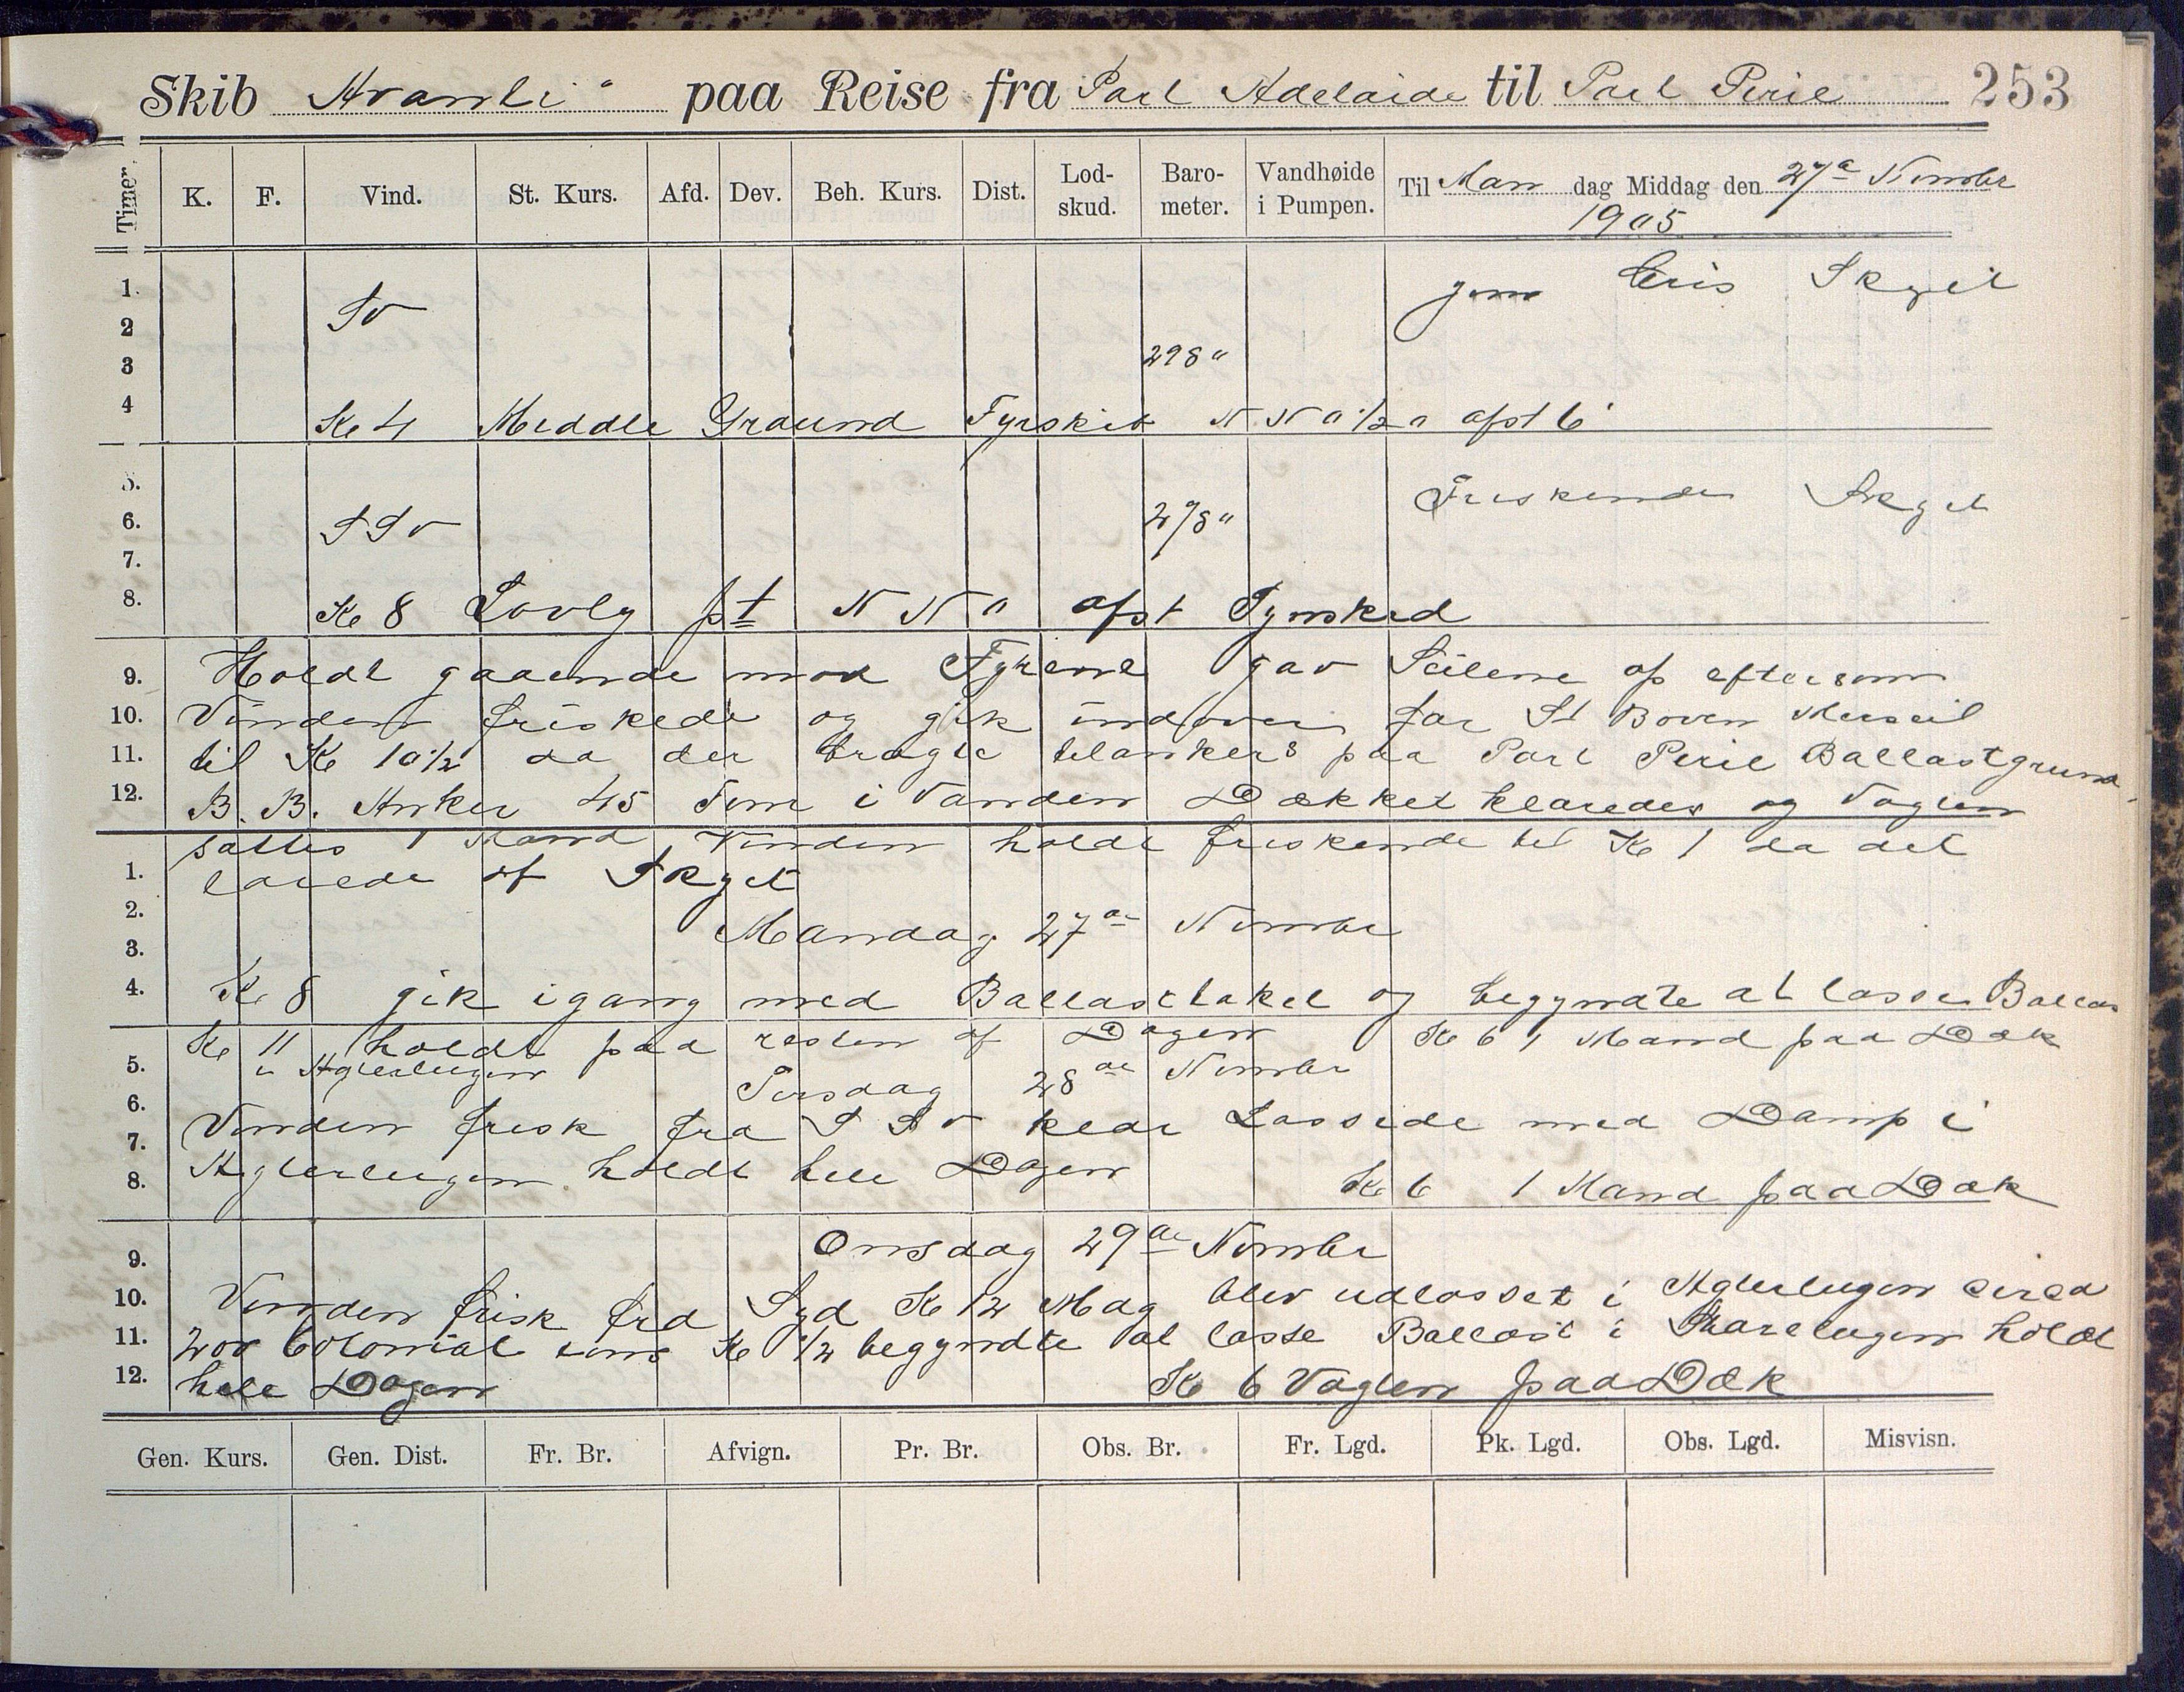 Skib Avanti" paa Reise fra Port Adelaide til Port Pirie 253
Timer. K. F. Vind. St. Kurs. Afd. Dev. Beh. Kurs. Dist. Lod-skud. Baro-meter. Vandhøide i Pumpen. Til Man dag Middag den 27de Nvmbr
1905
1. jevn Bris Skyet
2 SV
3 298"
4 Kl 4 Meddle Graund Fyrskib N N O 1/2 O afst 6'
5.
6. SSV 298" Friskende Skyet
7.
8. Kl 8 Lovly pt N N O afst Gynsked
9. Holdt gaaende mod Fyrene gav Seilene op eftersom
10. Vinden friskede og gik indover for St Boven Merseil
11. til Kl 10 1/2 da der bragte tilankers paa Port Pirie Ballastgrund
12. B. B. Anker 45 Fvm i Vanden Dækket klaredes og Vagten
sattes 1 Mand Vinden holdt friskende til Kl 1 da det
1. løiede af Skyet
2. Mandag 27de Nvmbr
3.
4. Kl 8 gik igang med Ballasttakel og begyndte at losse Ballas
Kl 11 holdt paa resten af Dagen Kl 6 1 Mand paa Dæk
5. i Agterlugen
Tirsdag 28de Nvmbr
6.
7. Vinden frisk fra S S V klar Lossede med Damp i
8. Agterlugen holdt hele Dagen Kl 6 1 Mand paa Dæk
9. Onsdag 29de Nvmbr
10. Vinden frisk fra Syd Kl 12 Mdg blev udlosset i Agterlugen circa
11. 200 Colonial tons Kl 1/2 begyndte at losse Ballast i Storelugen holdt
12. hele Dagen Kl 6 Vagten paa Dæk
Gen. Kurs. Gen. Dist. Fr. Br. Afvign. Pr. Br. Obs. Br. Fr. Lgd. Pk. Lgd. Obs. Lgd. Misvisn.